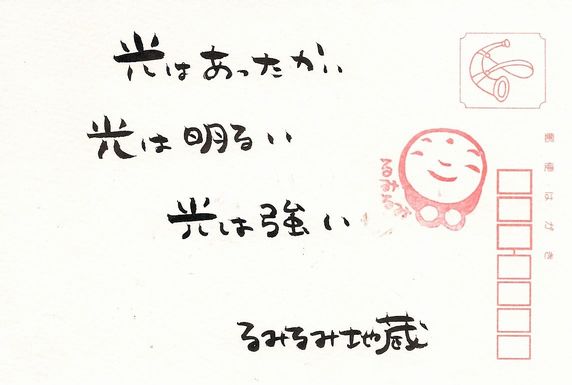 光はあったかい
光は明るい
光は強い
るみるみ地蔵
るみるみ
郵便はがき